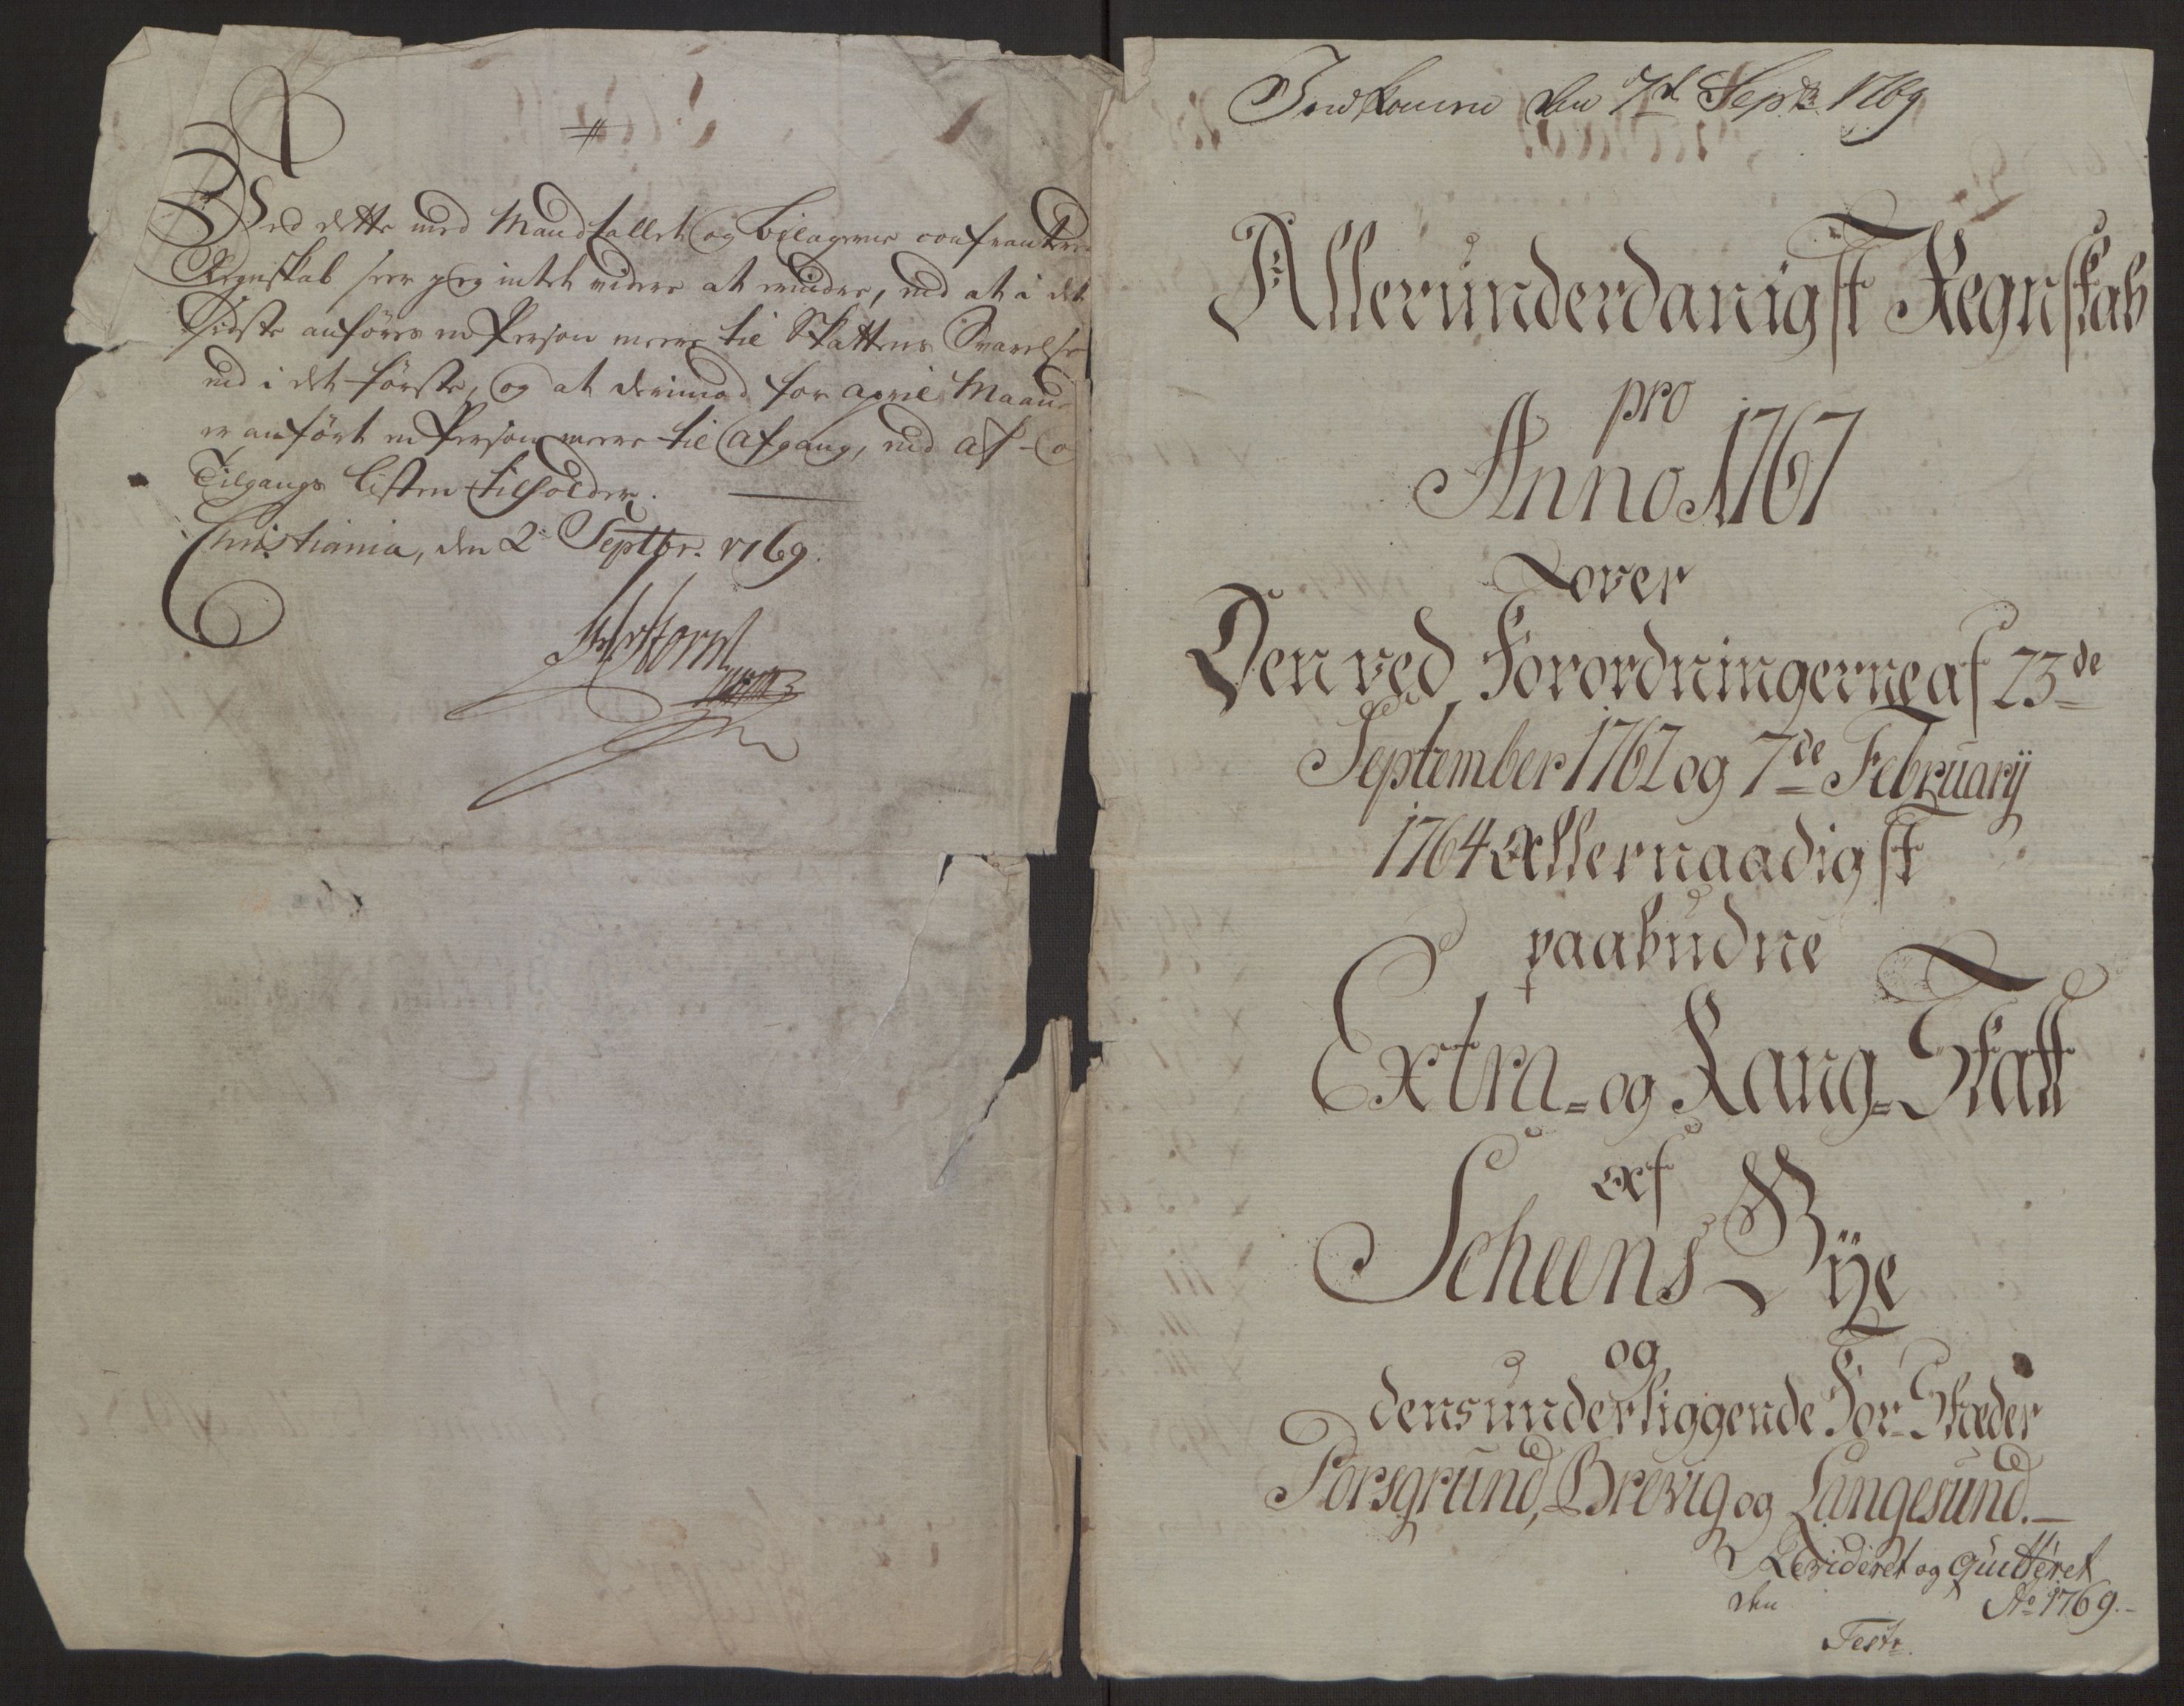 Ved dette med Mandtallet og bilagerne confrontere
Regnskab seer jeg intet videre at erindre, end at i det
Sidste anføres en Person meere til Skattens Svarelse
end i det første, og at derimod for April Maan
er anført en Person meere til Afgang, end Af- o
Tilgangs listen tilholder.
Christiania, den 2 Septbr. 1769.
Indkomne den 7d Septr. 1769
Allerunderdanigst Regnskab
pro
Anno 1767
over
Den ved Forordningerne af 23de
September 1762 og 7de February
1764 Allernaadigst
paabudne
Extra- og Rang-Skatt
af
Scheens Bÿe
og
dens underliggende For-Stæder
Porsgrund, Brevig og Langesund.
Revideret og quitteret
den Ao 1769.
Test.